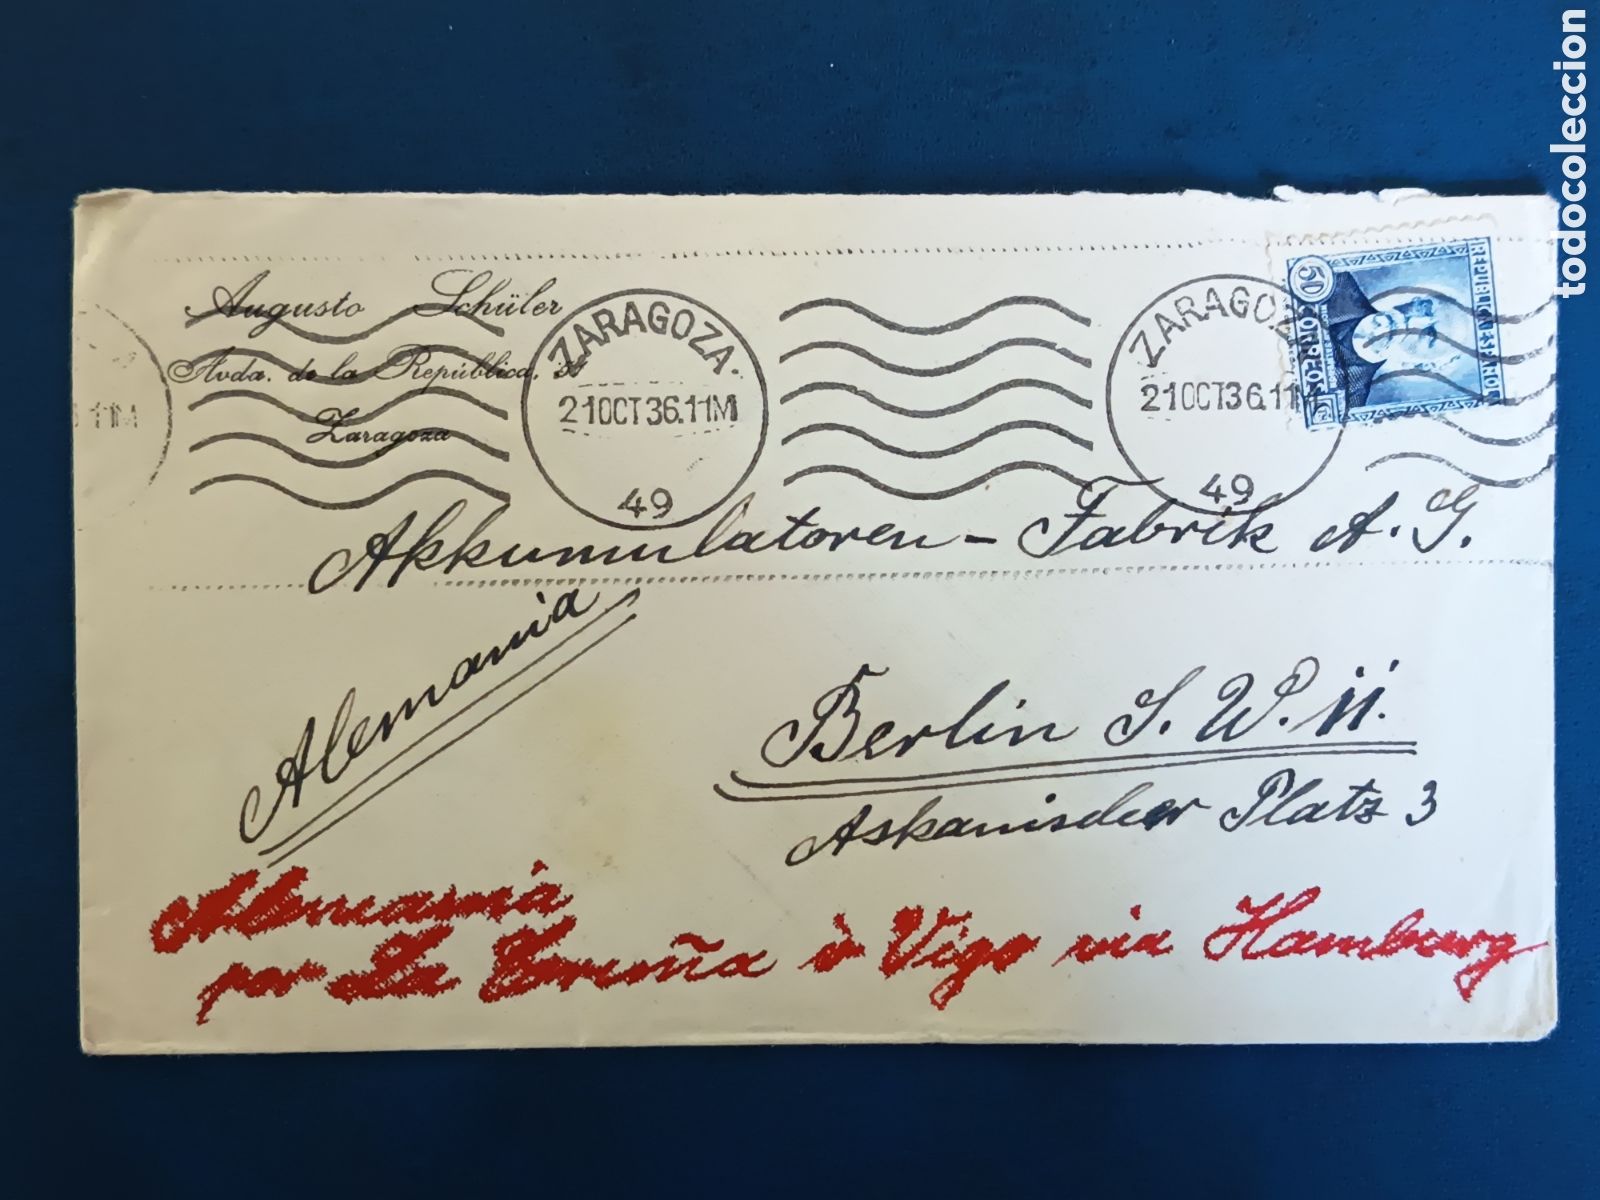 todocoleccion
Augusto Schüler
Avda. de la República,
Zaragoza
11M
ZARAGOZA.
21 OCT 36.11M
49
ZARAGOZ
21 OCT 36.11
49
50
CORREOS
REPUBLICA ESPAÑOLA
Akkumulatoren-Fabrik A. G.
Alemania
Berlin S. W. 11.
Askanischer Platz 3
Alemania
por La Coruña ò Vigo via Hamburg